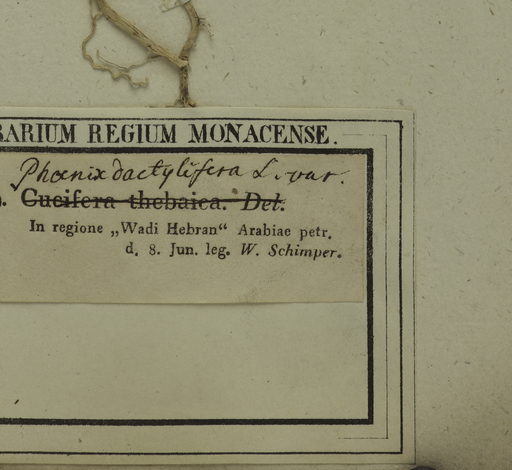 BARIUM REGIUM MONACENSE.
Phœnix dactylifera L. var.
). Cucifera thebaica. Del.
In regione „Wadi Hebran“ Arabiae petr.
d. 8. Jun. leg. W. Schimper.